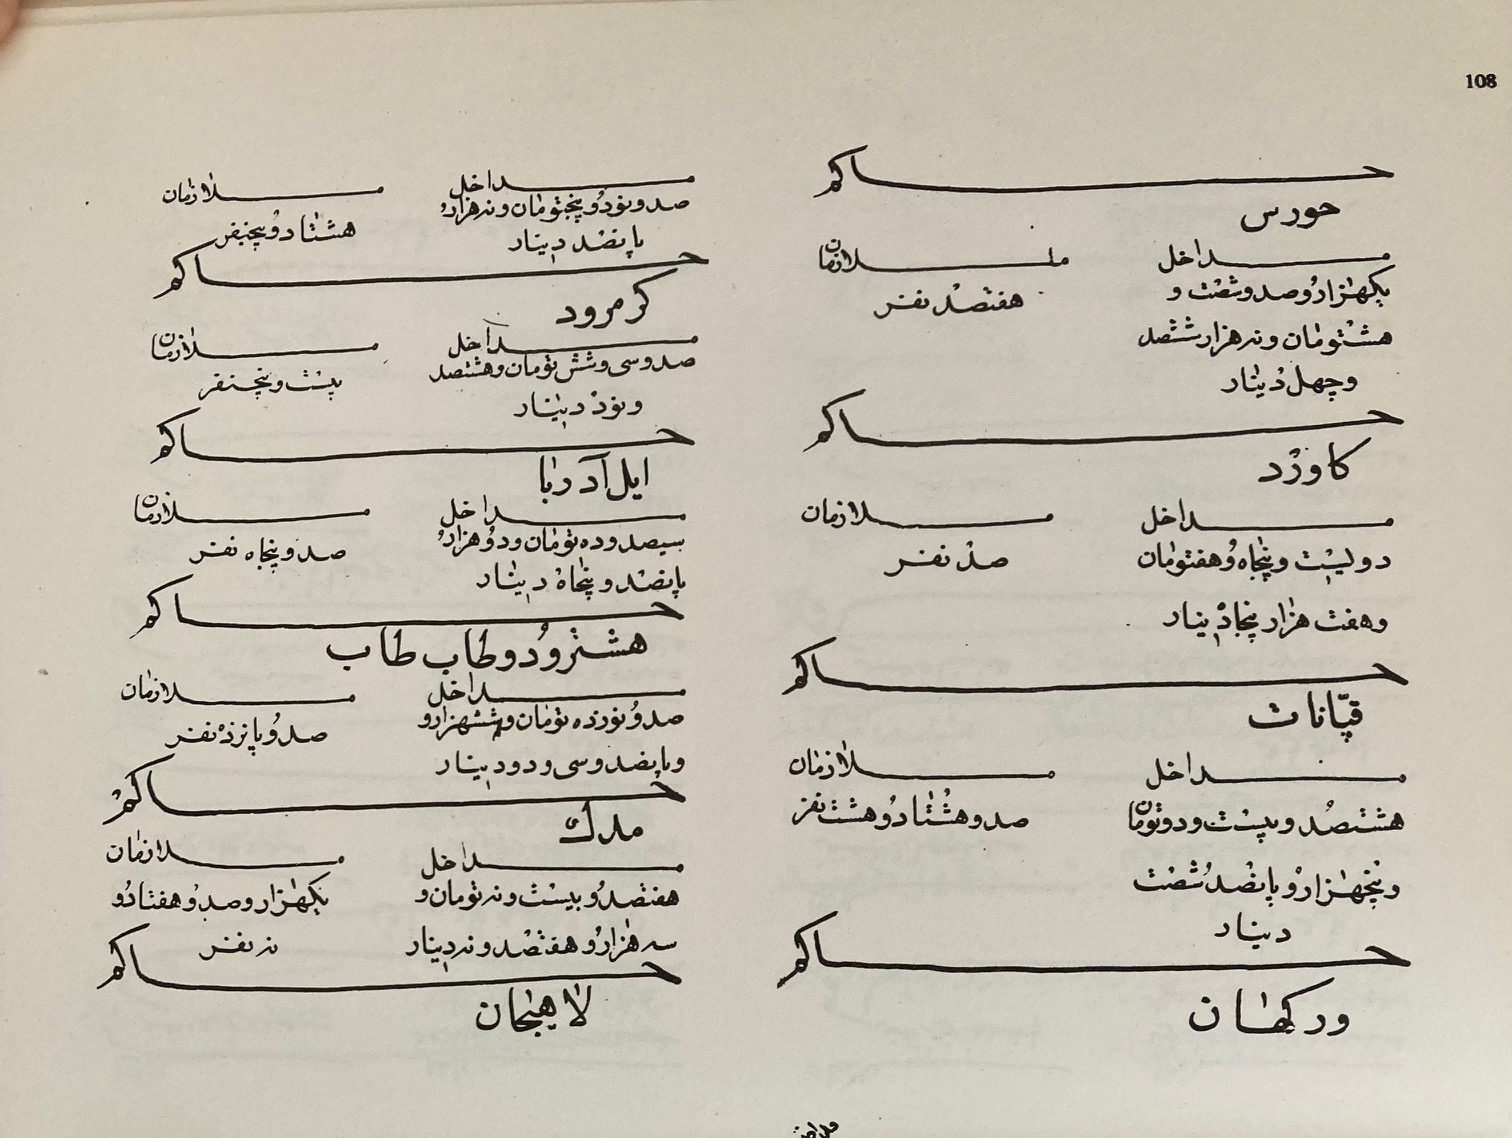 108
حاکم
حورس
مداخل ملازمان
یکهزار و صد و شصت و هفتصد نفر
هشتومان و نه هزار ششصد
و چهل دینار
حاکم
کاورد
مداخل ملازمان
دولیست و پنجاه و هفتومان صد نفر
و هفت هزار پنجادینار
حاکم
قپّانات
مداخل ملازمان
هشتصد و بیست و دو تومان صد و هشتاد و هشت نفر
و پنجهزار و پانصد شصت
دینار
حاکم
ورکهان
مداخل ملازمان
صد و نود و پنجتومان و نه هزار و هشتاد و پنجنفر
پانصد دینار
حاکم
کرمرود
مداخل ملازمان
صد و سی و شش تومان و هشتصد بیست و پنجنفر
و نود دینار
حاکم
ایل آدربا
مداخل ملازمان
سیصد و ده تومان و دو هزار و صد و پنجاه نفر
پانصد و پنجاه دینار
حاکم
هشترود و طاب طاب
مداخل ملازمان
صد و نوزده تومان و ششهزار و صد و پانزده نفر
و پانصد و سی و دو دینار
حاکم
مدک
مداخل ملازمان
هفتصد و بیست و نه تومان و یکهزار و صد و هفتاد و
سه هزار و هفتصد و نه دینار نه نفر
حاکم
لاهیجان